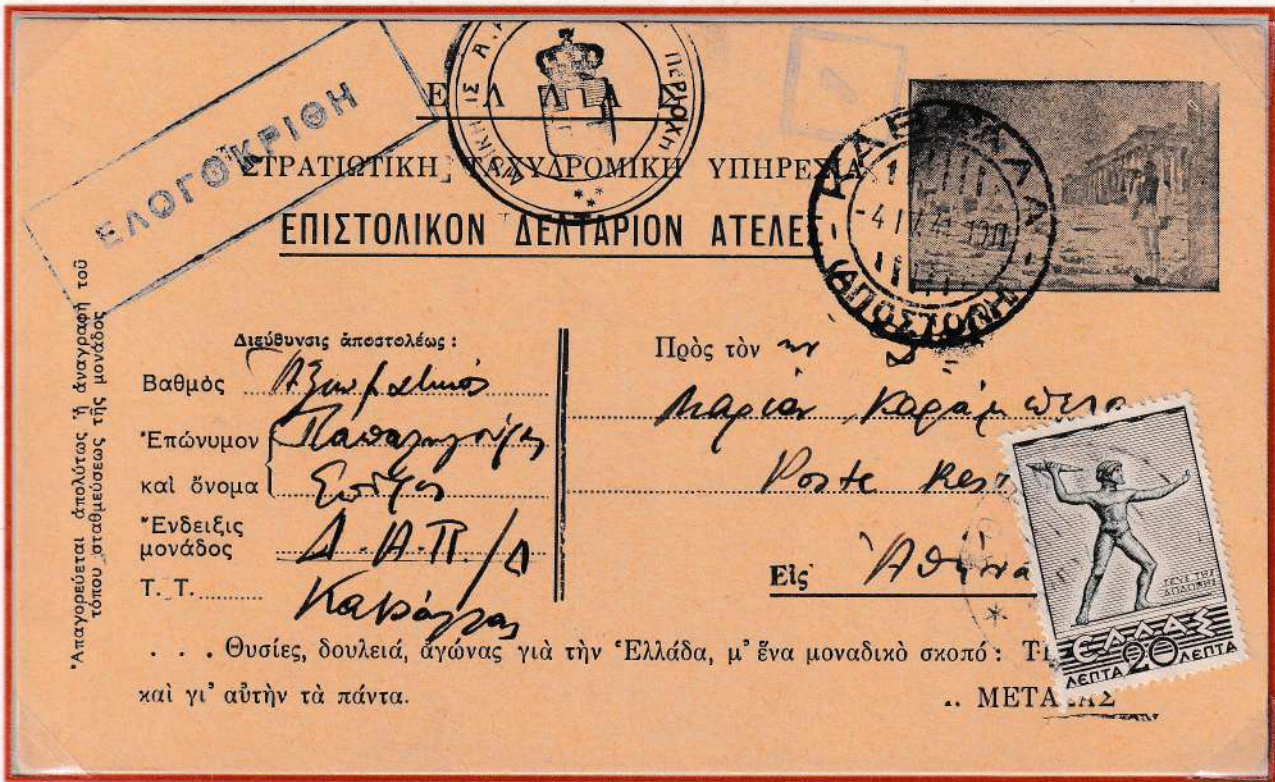 ΕΛΟΓΟΚΡΙΘΗ
ΠΕΡΙΟΧΗ
ΕΛΛΑΣ
ΣΤΡΑΤΙΩΤΙΚΗ ΤΑΧΥΔΡΟΜΙΚΗ ΥΠΗΡΕΣΙΑ
ΕΠΙΣΤΟΛΙΚΟΝ ΔΕΛΤΑΡΙΟΝ ΑΤΕΛΕΣ
ΚΑΒΑΛΛΑ
(ΑΠΟΣΤΟΛΗ)
Ἀπαγορεύεται ἀπολύτως ἡ ἀναγραφὴ τοῦ
τόπου σταθμεύσεως τῆς μονάδος
Διεύθυνσις ἀποστολέως :
Βαθμὸς Ἀξιωματικός
Ἐπώνυμον
καὶ ὄνομα
Ἔνδειξις
μονάδος Δ.Α.Π./Δ
Τ. Τ. Καβάλλας
Πρὸς τὸν
Μαρίαν
Poste
Εἰς Ἀθήνα
ΖΕΥΣ ΤΗΣ
ΔΩΔΩΝΗΣ
ΕΛΛΑΣ
ΛΕΠΤΑ 20 ΛΕΠΤΑ
. . . Θυσίες, δουλειά, ἀγώνας γιὰ τὴν Ἑλλάδα, μ' ἕνα μοναδικὸ σκοπό :
καὶ γι' αὐτὴν τὰ πάντα.
.. ΜΕΤΑΞΑΣ